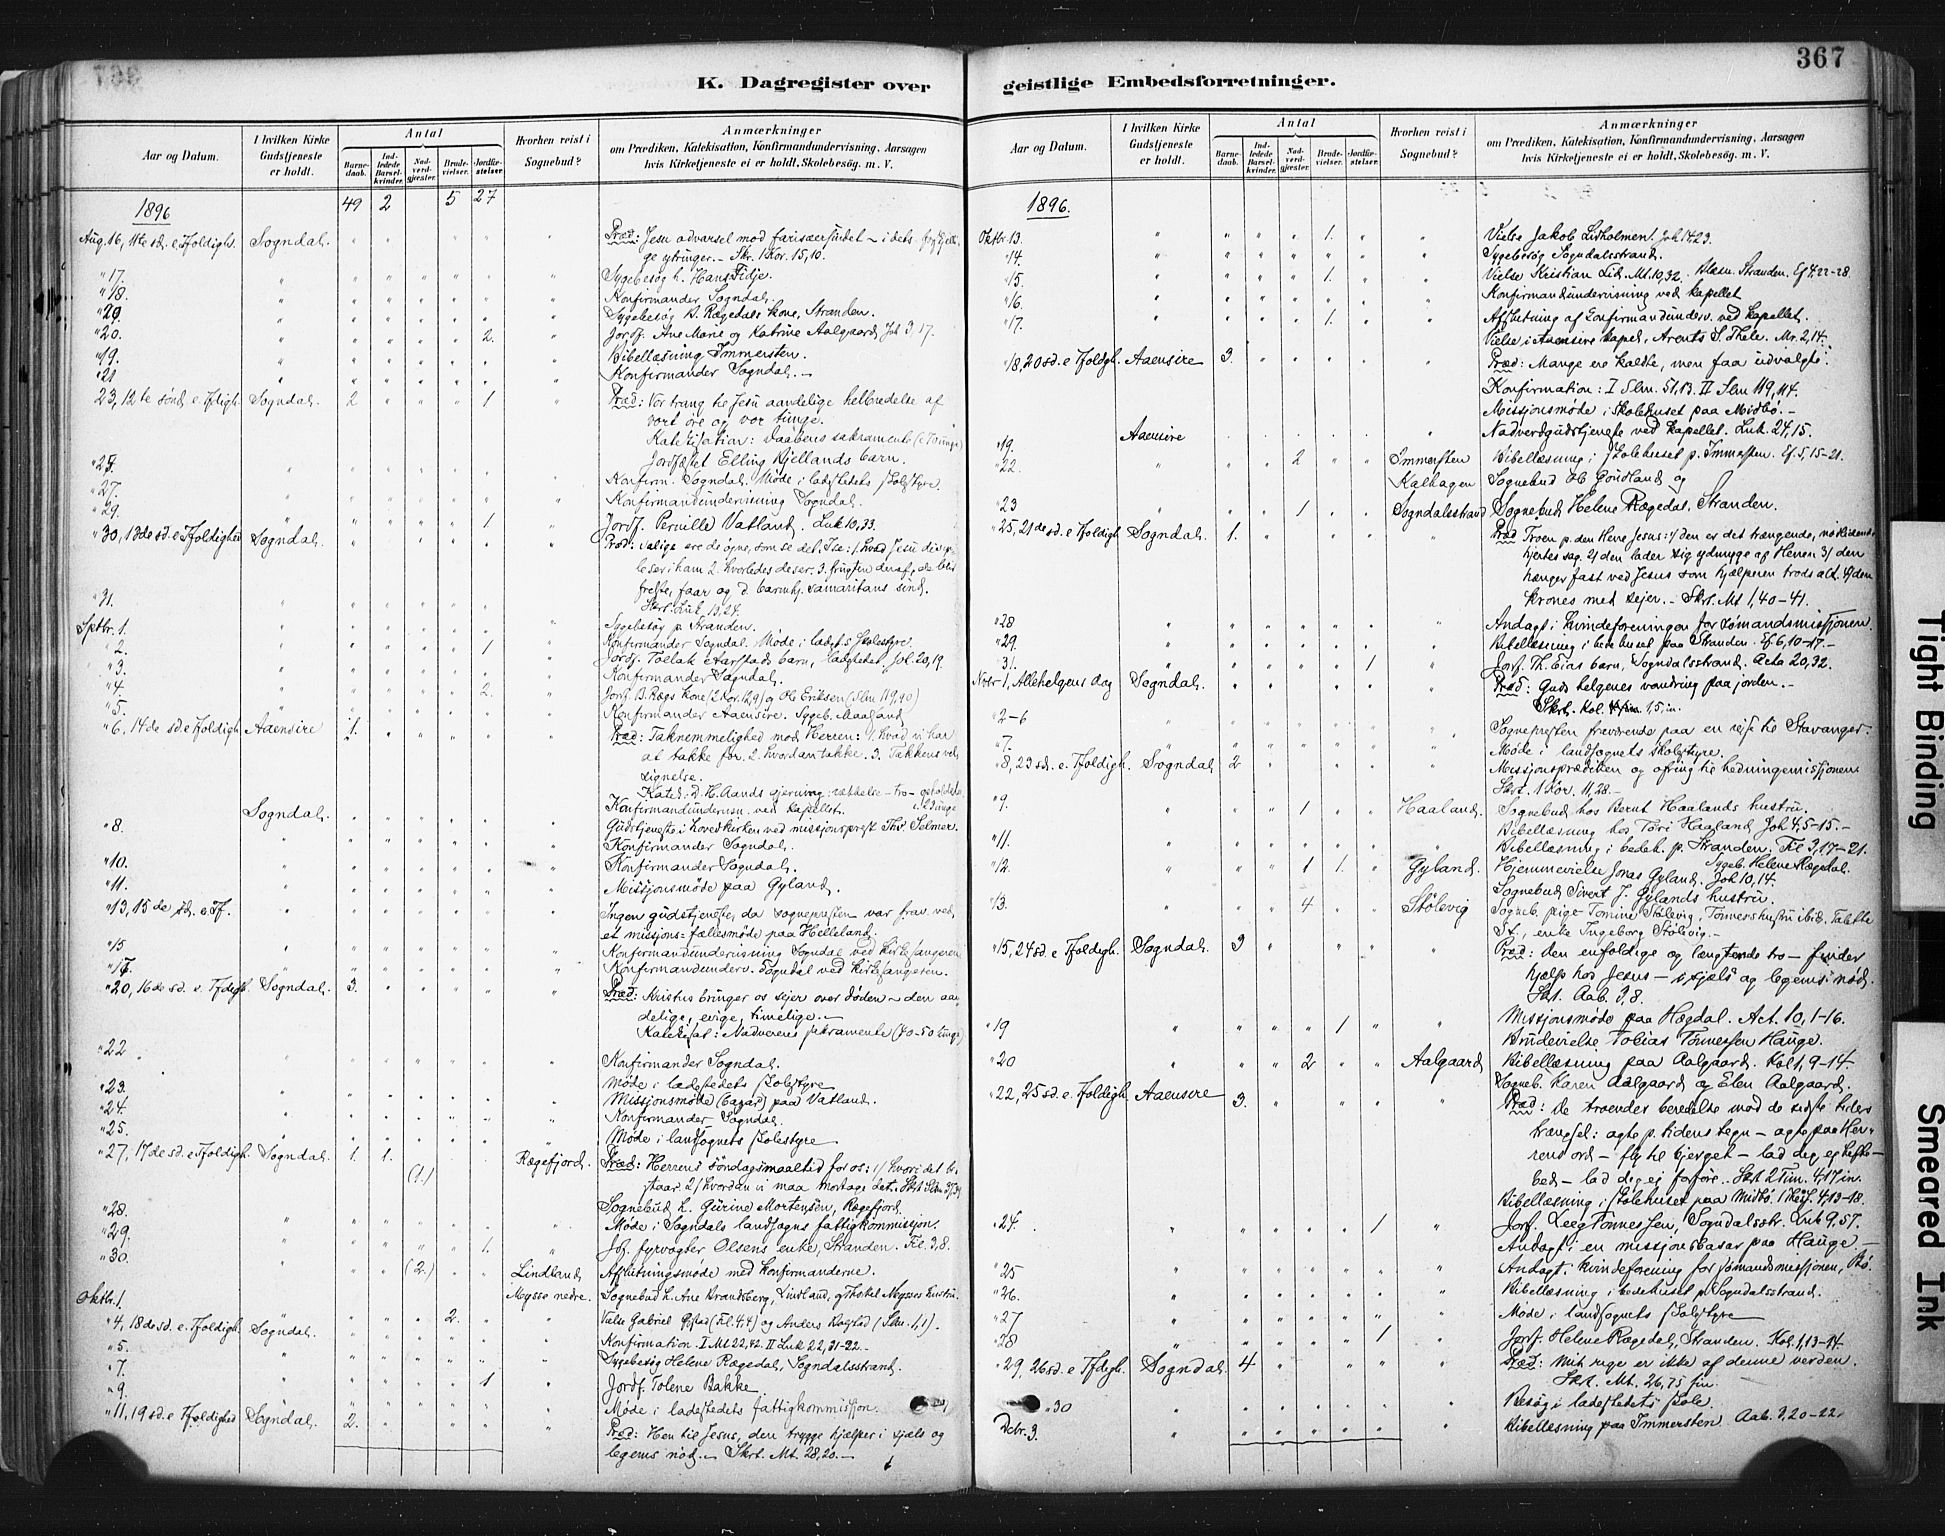 367
K. Dagregister over
Aar og Datum.
I hvilken Kirke Gudstjeneste er holdt.
Antal
Barnedaab.
Indledede Barselkvinder.
Nadverdgjester.
Brudevielser.
Jordfæstelser.
Hvorhen reist i Sognebud?
Anmærkninger
om Prædiken, Katekisation, Konfirmandundervisning, Aarsagen
hvis Kirketjeneste ei er holdt, Skolebesög. m. V.
1896 49 2 5 27
Aug. 16, 11te sd. e. Tfoldigh. Sogndal. Præd: Jesu advarsel mod farisæersindet
Skr. 1 Kor. 15,10.
"17. Sygebesög h. Hans Fidje.
"18. Konfirmander Sogndal.
Sygebesög B. Rægedals kone, Stranden.
"20. 2. Jordf. Ane Marie og Katrine Aalgaard, Joh 3,17.
"19. Bibellæsning Immersten.
"21 Konfirmander Sogndal.
23, 12te sönd. e. Tfoldigh. Sogndal. 2 1 Præd: Vor trang til Jesu aandelige helbredelse af
vort öre og vor tunge.
Katekisation: Daabens sakramente
Jordfæstet Elling Kjellands barn.
"25. Konfirm. Sogndal. Möde i ladestedets skolestyre
"27. Konfirmandundervisning Sogndal.
"29. 1 Jordf. Pernille Vatland. Luk 10,33.
"30, 13de sd. e. Tfoldighed Sogndal. Præd: Salige ere de öine, som se det
og d. barmhj. samaritans sind.
"31. Sygebesög p. Stranden.
Sptbr. 1. Konfirmander Sogndal. Möde i ladest.s skolestyre.
"2. 1 Jordf. Tollak Aarstads barn, ladestedet. Joh. 20,19.
"3. Konfirmander Sogndal.
"4. 2. Jordf. B. Rægs kone (2 Kor. 12,9) og Ole Eriksen (Slm 119,90)
"5. Konfirmander Aaensire. Sygeb. Maaland
"6, 14de sd. e. Tfoldigh. Aaensire 1. Præd: Taknemmelighed mod Herren: 1. hvad vi har
at takke for. 2. hvordan takke. 3. Takkens velsignelse.
Konfirmandundervisn. ved kapellet.
Sogndal. Gudstjeneste i hovedkirken ved missjonsprest Thv. Selmer.
"8. Konfirmander Sogndal.
"10. Konfirmander Sogndal.
"11. Missjonsmöde paa Gyland.
"13, 15de sd. e. Tf. Ingen gudstjeneste, da sognepresten var frav. ved
et missjons-fællesmöde paa Helleland.
"15 Konfirmandundervisning Sogndal ved kirkesangeren
"17. Konfirmandunderv. Sogndal ved kirkesangeren.
"20, 16de sd. e. Tfdigh. Sogndal. 3. Præd: Kristus bringer os sejer over döden – den aandelige, evige, timelige.
Katekisat: Nadverens sakramente (40-50 unge)
"22 Konfirmander Sogndal.
"23. Möde i ladestedets skolestyre
"24. Missjonsmöde (bazar) paa Vatland.
"25. Konfirmander Sogndal.
Möde i landsognets skolestyre
"27, 17de sd. e. Tfoldigh. Sogndal. 1. 1. (1.) Rægefjord. Præd: Herrens söndagsmaaltid for os: 1/ hvori det bestaar. 2/ hvordan vi maa modtage det.
"28. Sognebud h. Gurine Mortensen, Rægefjord.
"29. Möde i Sogndals landsogns fattigkommissjon.
"30. 1. Jof. fyrvogter Olsens enke, Stranden. Fil. 3,8.
(2.) Lindland Afslutningsmöde med konfirmanderne.
Oktbr. 1. Mysse nedre. Sognebud h. Ane Brandsberg, Lindland, og Mysses hustru.
"4, 18de sd. e. Tfoldigh. Sogndal. 2. Vielse Gabriel (Fil. 4,4) og Anders (Slm. 1,1).
"5. Konfirmation. I Mt 22,42. II Luk 22,31-22.
"7. Sygebesög Helene Rægedal, Sogndalsstrand.
"9. 1 Jordf. Tolene Bakke
Möde i ladestedets fattigkommissjon.
"11, 19 sd. e. Tfoldighed Sogndal. 2. Præd: Hen til Jesus, den trygge hjælper i sjæls og
legems nöd. Skrt. Mt. 28,20.
geistlige Embedsforretninger.
Aar og Datum.
I hvilken Kirke Gudstjeneste er holdt.
Antal
Barnedaab.
Indledede Barselkvinder.
Nadverdgjester.
Brudevielser.
Jordfæstelser.
Hvorhen reist i Sognebud?
Anmærkninger
om Prædiken, Katekisation, Konfirmandundervisning, Aarsagen
hvis Kirketjeneste ei er holdt, Skolebesög. m. V.
1896.
Oktbr. 13. 1. Vielse Jakob Lidholmen. Joh 14,23.
"14. Sygebesög Sogndalsstrand.
"15. 1. Vielse Kristian Lid. Mt. 10,32. Stranden. Ef 4,22-28.
"16 Konfirmandundervisning ved kapellet
"17. 1. Afslutning af Konfirmandunderv. ved kapellet.
Vielse i Aaensire kapel, Arents S. Thele. Mr. 2,14.
"18, 20 sd. e. Tfoldgh. Aaensire 3. Præd: Mange ere kaldte, men faa udvalgte.
Konfirmation: I Slm. 51,13. II Slm 119,114.
Missjonsmöde i skolehuset paa Midbö.
Aaensire Nadverdgudstjeneste ved kapellet. Luk. 24,15.
"19. Bibellæsning i skolehuset p. Immersten. Ef. 5,15-21.
"22. 2 Immersten
Kalhagen Sognebud Ob Goudland og
"23 1 Sogndalsstrand Sognebud Helene Rægedal, Stranden.
"25, 21de sd. e. Tfoldigh Sogndal. 1. Præd Troen p. den Herre Jesus: 1/ den er det trængende, nödlidende
hjertes sag. 2/ den lader sig ydmyge af Herren 3/ den
hænger fast ved Jesus som hjælperen trods alt. 4/ den
krones med sejer. Skrt. Mt 1,40-41.
"28 Andagt i kvindeforeningen for sömandsmissjonen.
"29. Bibellæsning i bedehuset paa Stranden. Ef. 6,10-17.
"31. 1 Jorf. Th. Eias barn, Sogndalsstrand. Acta 20,32.
Novbr 1, Allehelgens dag Sogndal. Præd: Guds helgenes vandring paa jorden.
Skrt. Kol. 1,5,in.
"2-6 Sognepresten fraværende paa en rejse til Stavanger.
"7. Möde i landsognets skolestyre.
"8, 23 sd. e. Tfoldigh. Sogndal 2 Missjonsprædiken og ofring til hedningemissjonen
Skrt. 1 Kor. 11,28.
"9. 1 Haaland. Sognebud hos Bernt Haalands hustru.
Bibellæsning hos Tori Haaland Joh 4,5-15.
"11. Bibellæsning i bedeh. p. Stranden. Fil 3,17-21.
Sygeb. Helene Rægedal.
"12. 1 1. Gyland. Hjemmevielse Jonas Gyland. Joh 10,14.
Sognebud Sivert J. Gylands hustru.
"13. 4 Stölevig Sogneb. pige Tomine Stölevig, Tönnes hustru ibid.
St., enke Ingeborg Stölevig.
"15, 24 sd. e Tfoldigh. Sogndal. 3 Præd: Den enfoldige og længtende tro – finder
hjælp hos Jesus – i sjæls og legems nöd.
Skt. Aab. 3,8.
Missjonsmöde paa Hægdal. Act. 10,1-16.
"19 1 Brudevielse Tobias Tönnessen Hauge.
"20 2 Aalgaard Bibellæsning paa Aalgaard. Kol 1,9-14.
Sogneb. Karen Aalgaard og Elen Aalgaard.
"22, 25 sd. e. Tfoldigh. Aaensire 3. Præd: De troendes beredelse mod de sidste tiders
trængsel: agte p. tidens tegn – agte paa Herrens ord – fly til bjerget
lad dig ej forföre. Skrt 2 Tim. 4,17 in.
Bibellæsning i skolehuset paa Midbö. 4,13-18.
"24. 1 Jorf. Leeg Tönnessen, Sogndalsstr. Luk 9,57.
Andagt i en missjonsbasar paa Hauge
"25 Andagt. Kvindeforening for sömandsmissjonen, Bö.
"26. Bibellæsning i bedehuset p. Sogndalsstrand.
"27 Möde i landsognets skolestyre
"28 1 Jorf. Helene Rægedal, Stranden. Kol. 1,13-14.
"29, 26 sd. e Tfdigh. Sogndal 4 Præd: Mit rige er ikke af denne verden.
Skrt. Mt. 26,75 fin.
"30 Besög i ladestedets skole.
Dcbr. 3. Bibellæsning paa Immersten Aab. 3,20-22.
Tight Binding
Smeared Ink